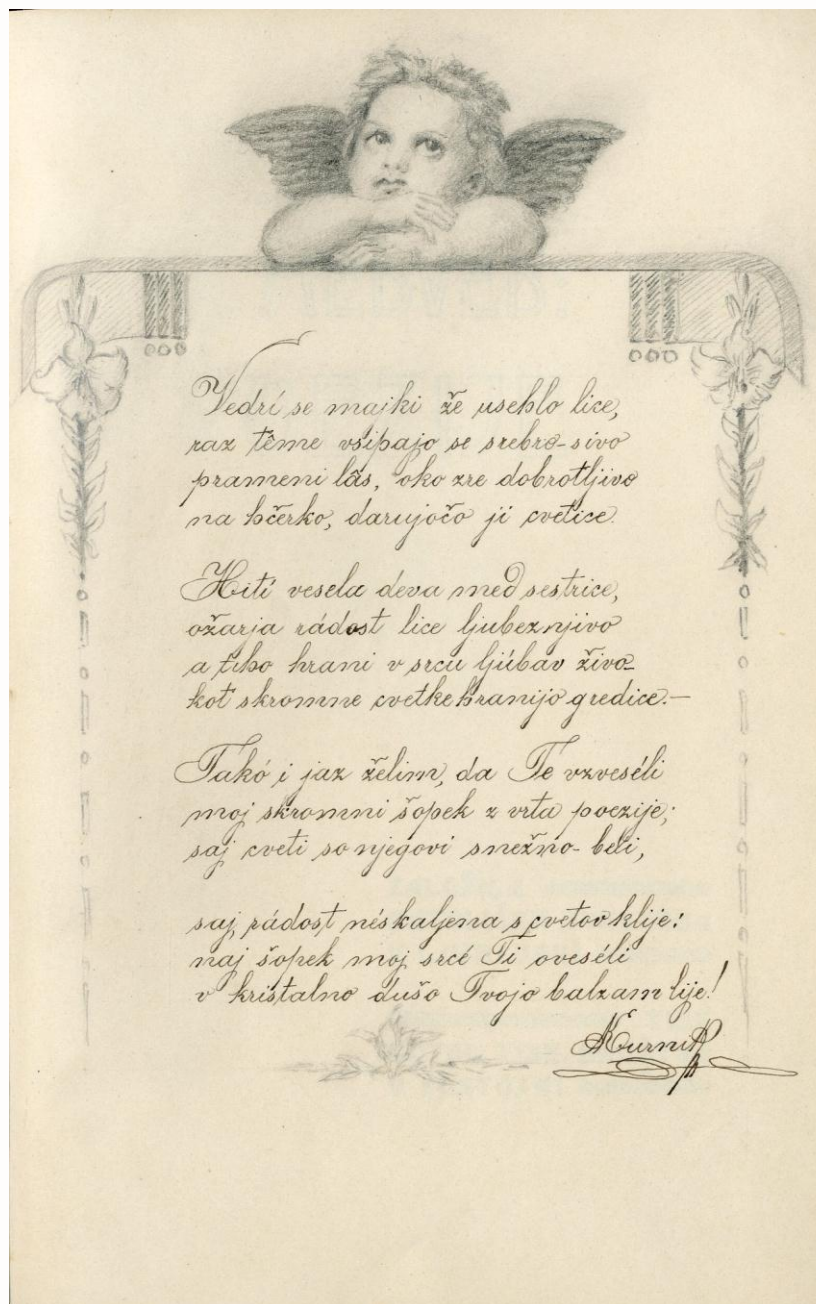 Vedrí se majki že usehlo lice,
raz têmé vsipajo se srebro-sivo
prameni lâs, oko zre dobrotljivo
na hčerko, darujočo ji cvetice.
Hití vesela deva med sestrice,
ožarja rádost lice ljubeznjivo
a tiho hrani v srcu ljúbav živo
kot skromne cvetke hranijo gredice. —
Takó i jaz želim, da Te vzveséli
moj skromni šopek z vrta poezije;
saj cveti so njegovi snežno-beli,
saj rádost néskaljena s cvetov klije:
naj šopek moj srcé Ti oveséli
v kristalno dušo Tvojo balzam lije!
Kurnik